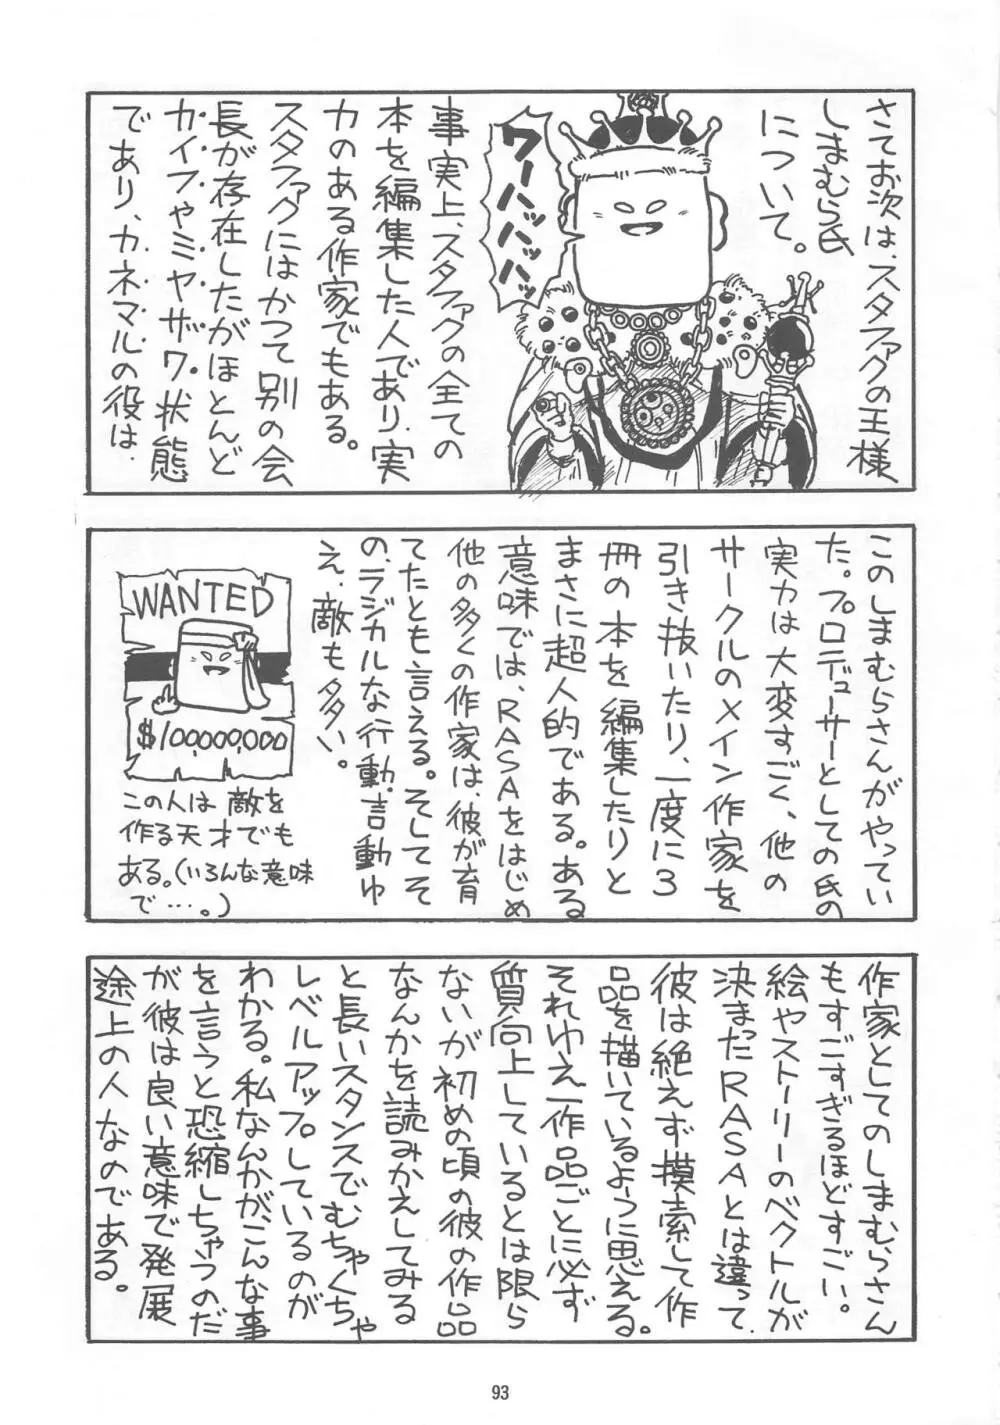 さてお次は、スタファグの王様
しまむら氏
について。
ワーハッハッハッハ
事実上、スタファグの全ての
本を編集した人であり、実
力のある作家でもある。
スタファグにはかつて別の会
長が存在したがほとんど
カイフやミヤザワ状態
であり、カネマルの役は、
このしまむらさんがやってい
た。プロデューサーとしての氏の
実力は大変すごく、他の
サークルのメイン作家を
引き抜いたり、一度に3
冊の本を編集したりと
まさに超人的である。ある
意味では、RASAをはじめ
他の多くの作家は、彼が育
てたとも言える。そしてそ
の、ラジカルな行動、言動ゆ
え、敵も多い。
WANTED
$100,000,000
この人は敵を
作る天才でも
ある。(いろんな意味
で…。)
作家としてのしまむらさん
もすごすぎるほどすごい。
絵やストーリーのベクトルが
決まったRASAとは違って、
彼は絶えず摸索して作
品を描いているように思える。
それゆえ一作品ごとに必ず
質向上しているとは限ら
ないが初めの頃の彼の作品
なんかを読みかえしてみる
と長いスタンスでむちゃくちゃ
レベルアップしているのが
わかる。私なんかがこんな事
を言うと恐縮しちゃうのだ
が彼は良い意味で発展
途上の人なのである。
93